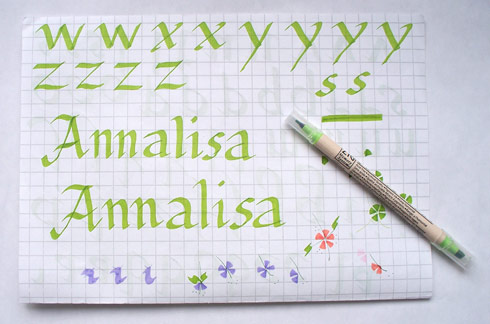 w w x x y y y y
z z z z s s
Annalisa
Annalisa